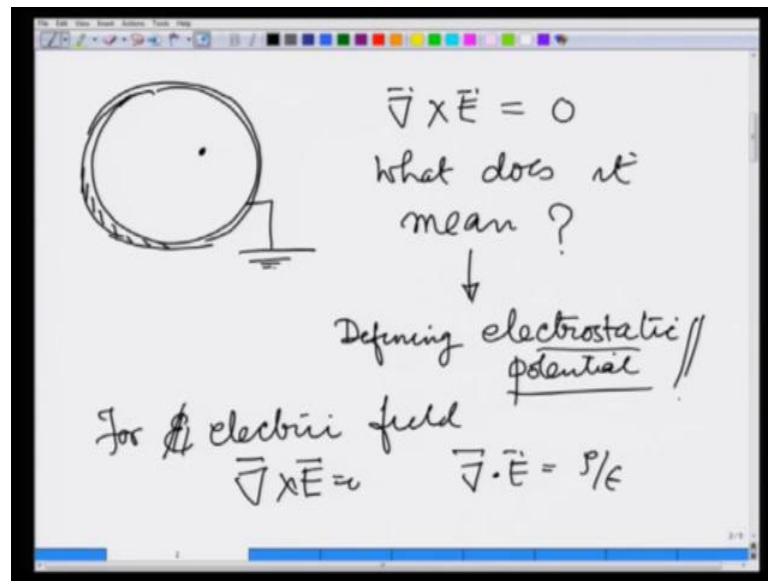 File Edit View Insert Actions Tools Help
∇⃗ × E⃗ = 0
What does it
mean ?
↓
Defining electrostatic
potential
For electric field
∇⃗ × E⃗ = 0 ∇⃗ · E⃗ = ρ/ϵ
2/9
2